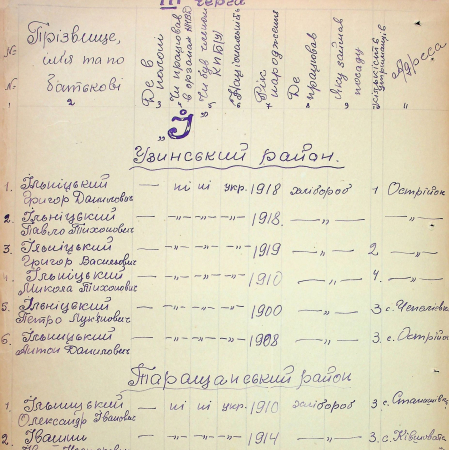 III черга
№
№
Прізвище,
ім'я та по
батькові
Де в
полоні
Чи працював
в органах НКВД
Чи був членом
КПб(У)
Національність
Рік
народження
Де
працював
Яку займав
посаду
Адреса
1 2 3 4 5 6 7 8 9 10 11
„І"
Узинський район.
1. Ільніцький
Григор Данилович — ні ні укр. 1918 хлібороб 1 Острійки
2. Ільніцький
Павло Тихонович — —„— —„— —„— 1918. —„— —„—
3. Ільніцький
Григор Васильович — —„— —„— —„— 1919 —„— 2 —„—
4. Ільніцький
Микола Тихонович — —„— —„— —„— 1910 —„— 4. —„—
5. Ільніцький
Петро Лук'янович — —„— —„— —„— 1900 —„— 3 с.
6. Ільніцький
Антон Данилович — —„— —„— —„— 1908 —„— 3. с. Острійки
Таращанський район
1. Ільницький
Олександр Іванович — ні ні укр. 1910 хлібороб 3 с.
2. Івашин — —„— —„— —„— 1914 —„— 3. с. Ківшовата